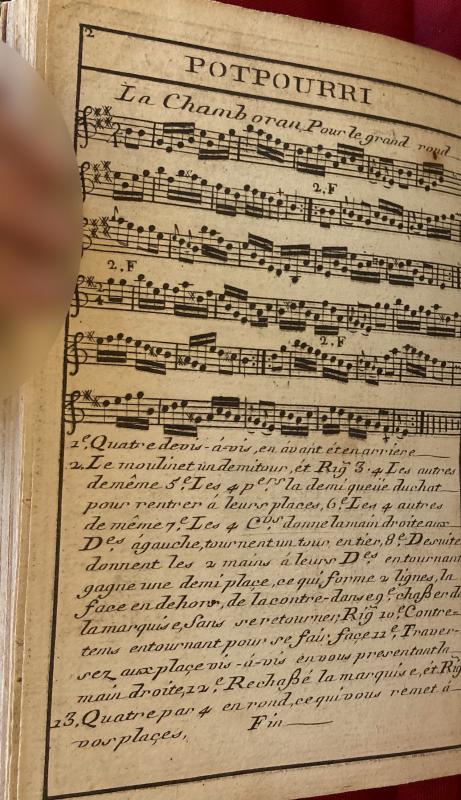 2
POTPOURRI
La Chamboran, Pour le grand rond
2. F
2. F
2. F
1e. Quatre de vis-á-vis, en avant et en arriere
2. Le moulinet un demi tour, et Rig 3. 4 Les autres
de même 5e. Les 4 pers la demi queüe du chat
pour rentrer á leurs places, 6e. Les 4 autres
de même 7e. Les 4 Cers donne la main droite aux
Des ágauche, tournent un tour en tier, 8e. Desuite
donnent les 2 mains á leurs Des en tournant
gagne une demi place, ce qui forme 2 lignes, la
face en dehors, de la contre-danse 9e. chaßer de
la marquise, sans se retourner, Rig 10e. Contre=
tems en tournant pour se fair façe 11e. Traver-
sez aux place vis-á-vis en vous presentant la
main droite, 12e. Rechaßé la marquise, et Rig
13. Quatre par 4 en rond, ce qui vous remet á
vos places, Fin